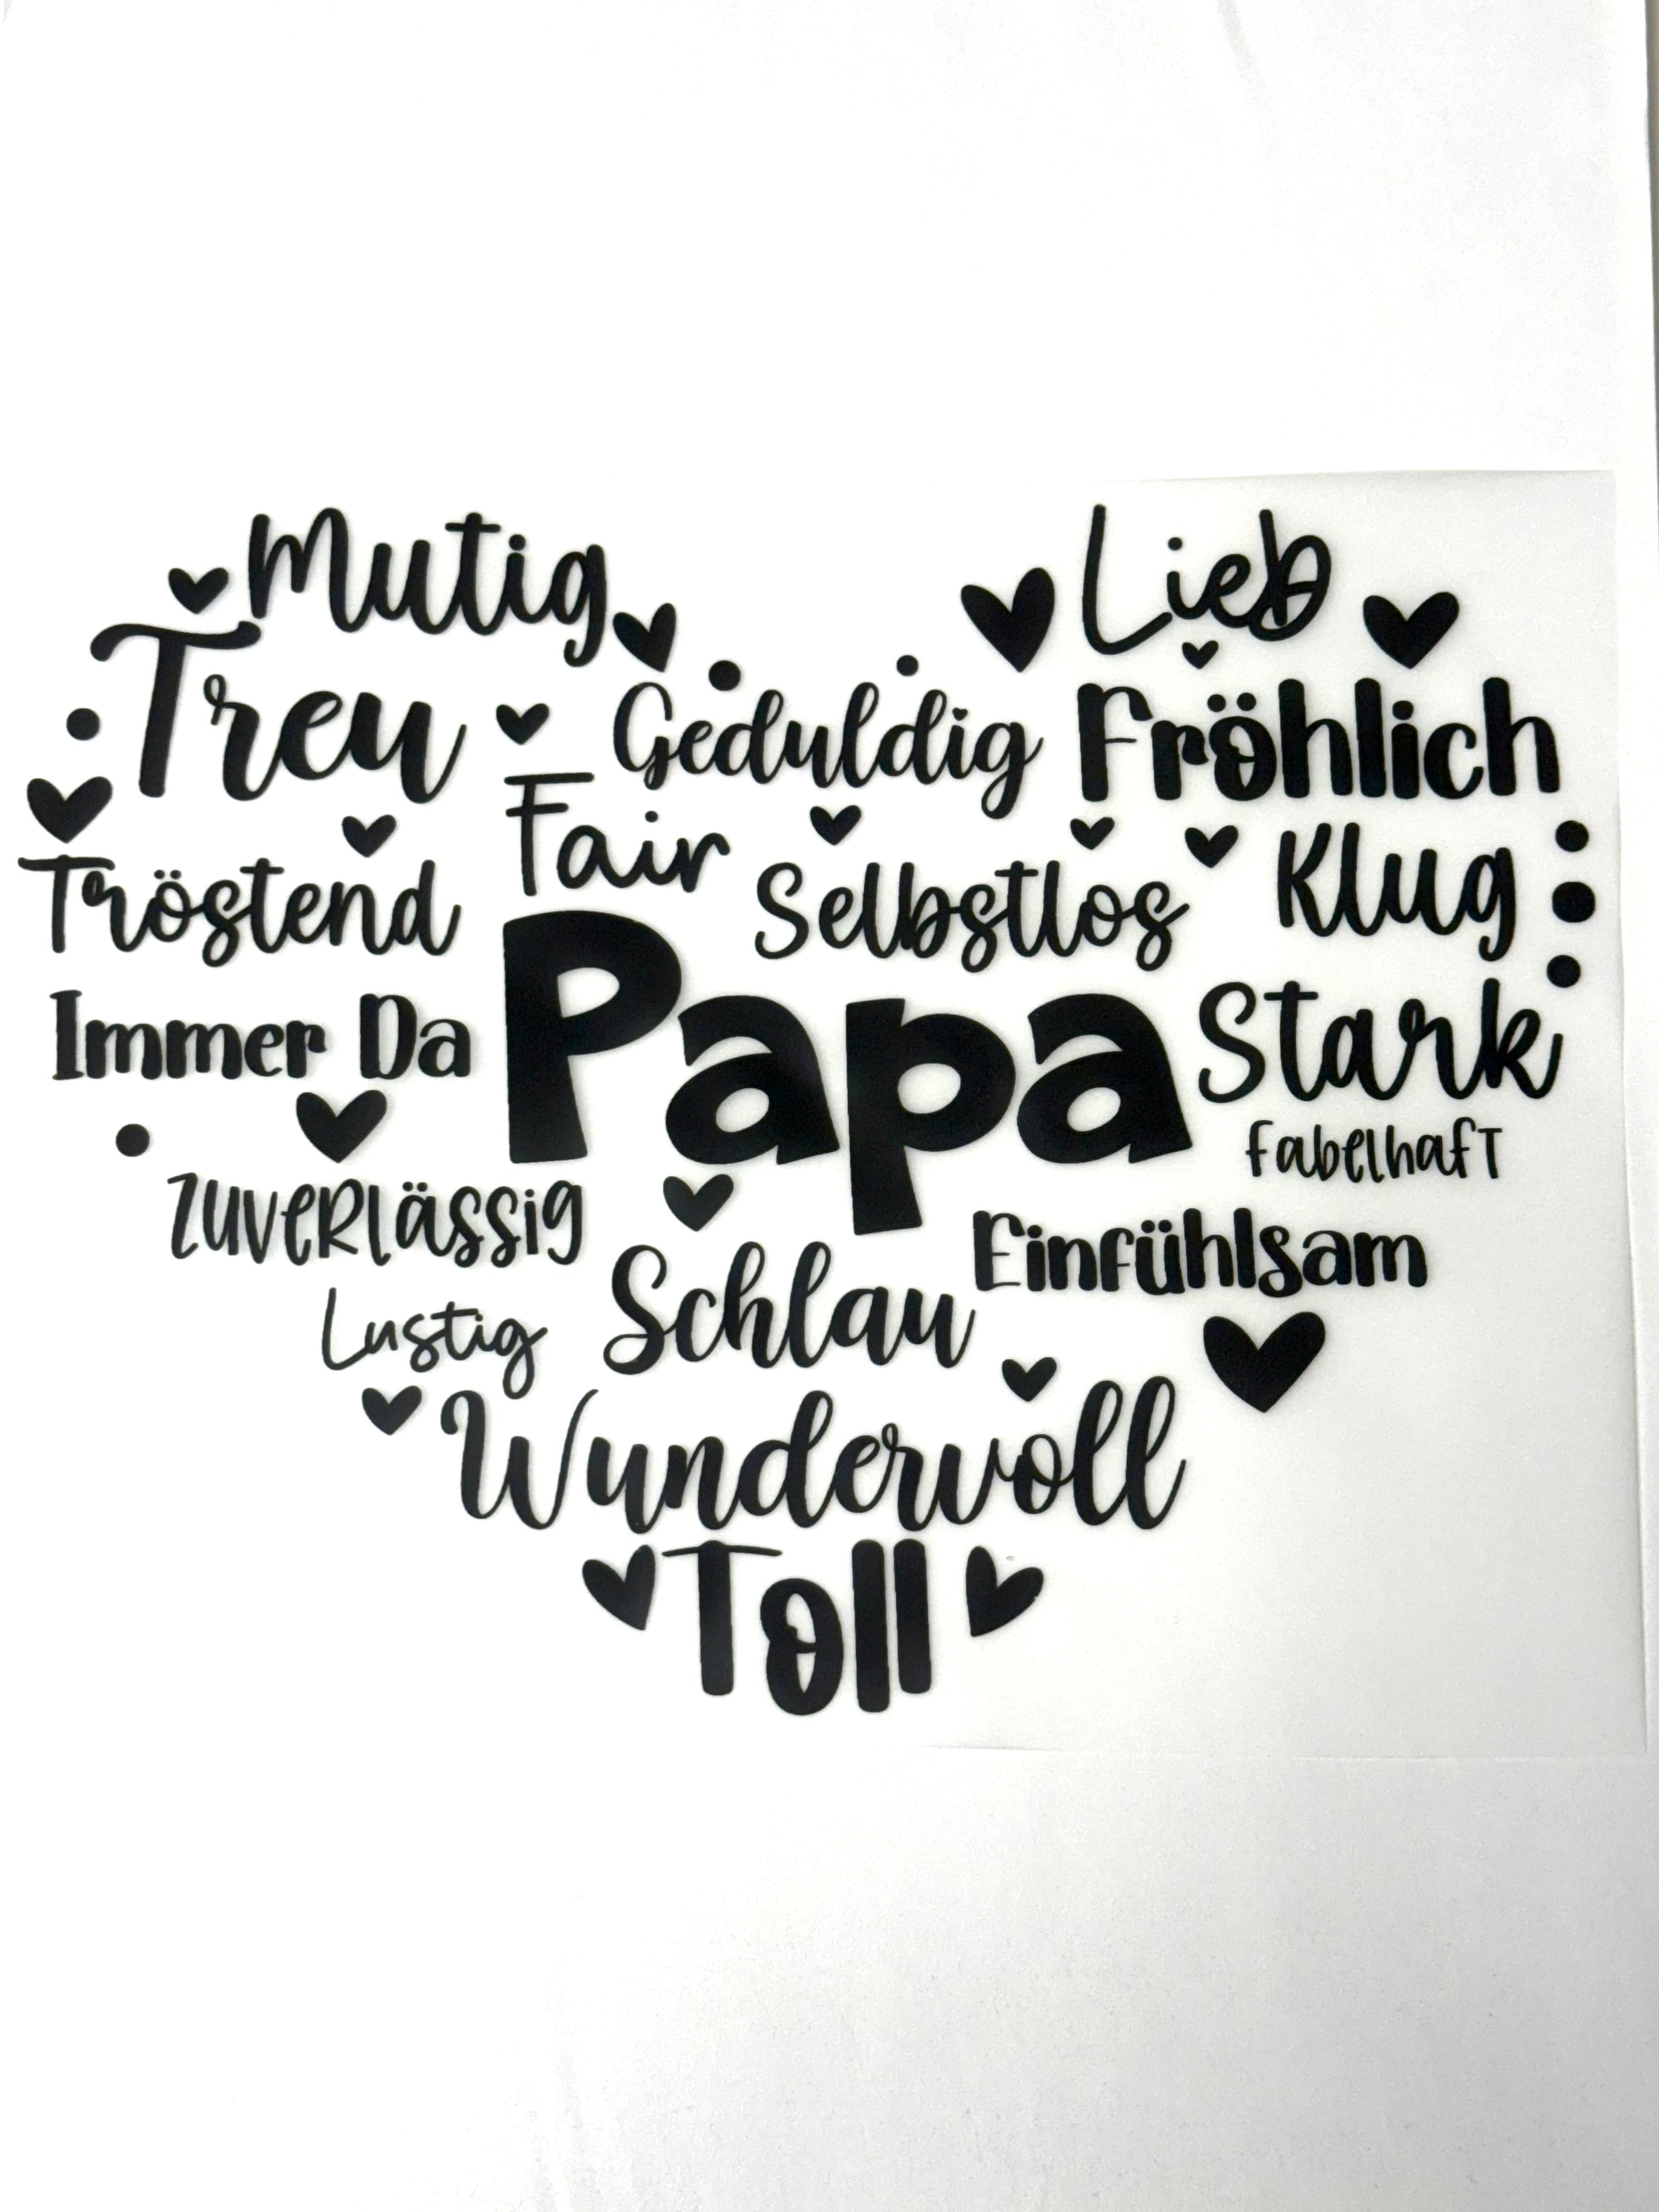 Mutig
Lieb
Treu
Geduldig
Fröhlich
Fair
Tröstend
Selbstlos
Klug
Immer Da
Papa
Stark
Fabelhaft
Zuverlässig
Einfühlsam
Lustig
Schlau
Wundervoll
Toll